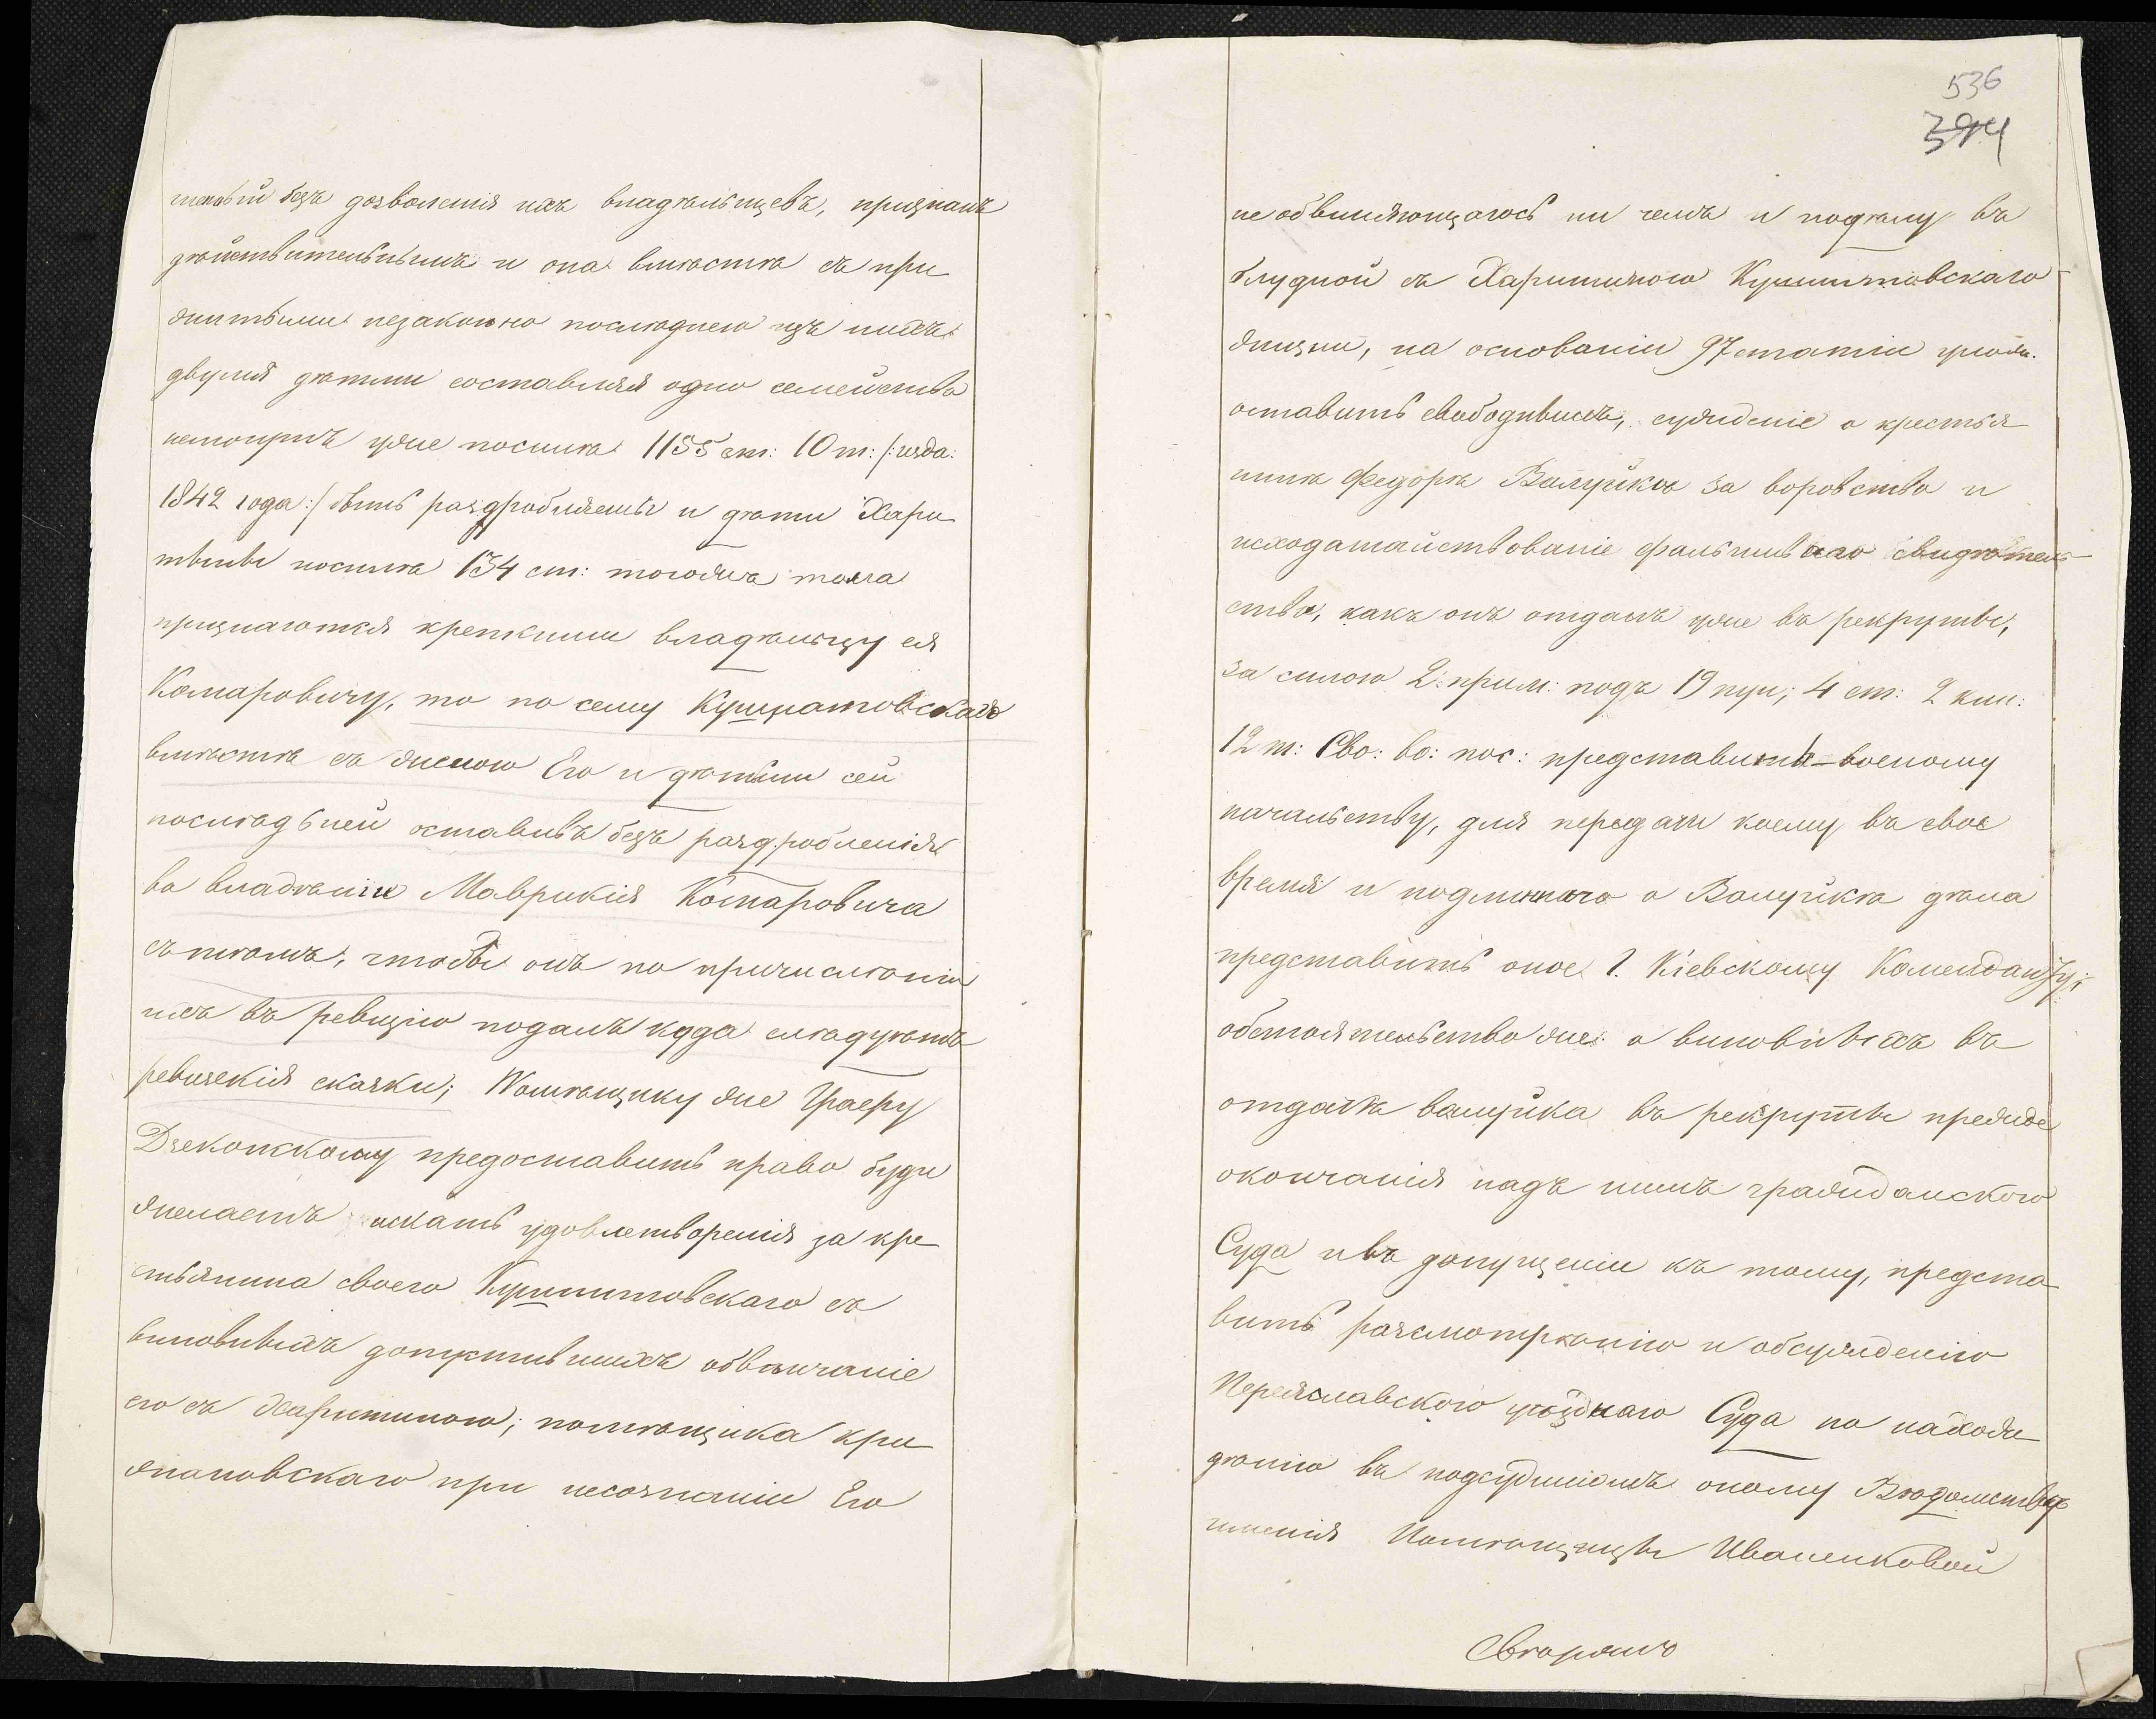 безъ дозволенія ихъ владѣльцевъ, признанъ
дѣйствительнымъ и она вмѣстѣ съ при
житыми незаконно послѣднею изъ нихъ
двумя дѣтьми составляя одно семейство
немогутъ уже посилѣ 1155 ст: 10 т: /: изда:
1842 года :/ быть раздробляемы и дѣти Хари
тины посилѣ 134 ст: тогожъ тома
признаются крепкими владѣльцу ея
Комаровичу, то по сему Кушнатовскаго
вмѣстѣ съ женою Его и дѣтьми сей
послѣдьней оставивъ безъ раздробленія
во владѣніи Маврикія Комаровича
съ тѣмъ, чтобы онъ по причисленіи
ихъ въ ревизію подалъ куда слѣдуетъ
ревизскія сказки; Помѣщику же Граеру
Дзеконскому предоставить право буди
желаетъ искать удовлетворенія за кре
стьянина своего Кушнитовскаго съ
виновныхъ допустившихъ обвѣнчаніе
его съ Харитиною; помѣщика кри
жановскаго при несознаніи Его
536
394
не обвиняющагось ни чемъ и поделу въ
блудной съ Харитиною Кушнитовскаго
жизни, на основаніи 97 статіи улож.
оставить свободнымъ, сужденіе о крестья
нинѣ Федорѣ Валуйкѣ за воровство и
исходатайствованіе фальшиваго свидѣтель
ства, какъ онъ отданъ уже въ рекруты,
за силою 2. прим: подъ 19 пун; 4 ст: 2 кни:
12 т: Сво: во: пос: представить военому
начальству, для передачи коему въ свое
время и подлиннаго о Валуйкѣ дѣла
представить оное Г. Кіевскому Коменданту;
обстоятельство же о виновныхъ въ
отдачѣ валуйка въ рекруты прежде
окончанія надъ нимъ гражданского
Суда и въ допущеніи къ тому, предста
вить разсмотрѣнію и обсужденію
Переяславского уѣзднаго Суда по нахож
дѣнію въ подсудимомъ оному Вѣдомствѣ
имѣнія Помѣщицы Иваненковой